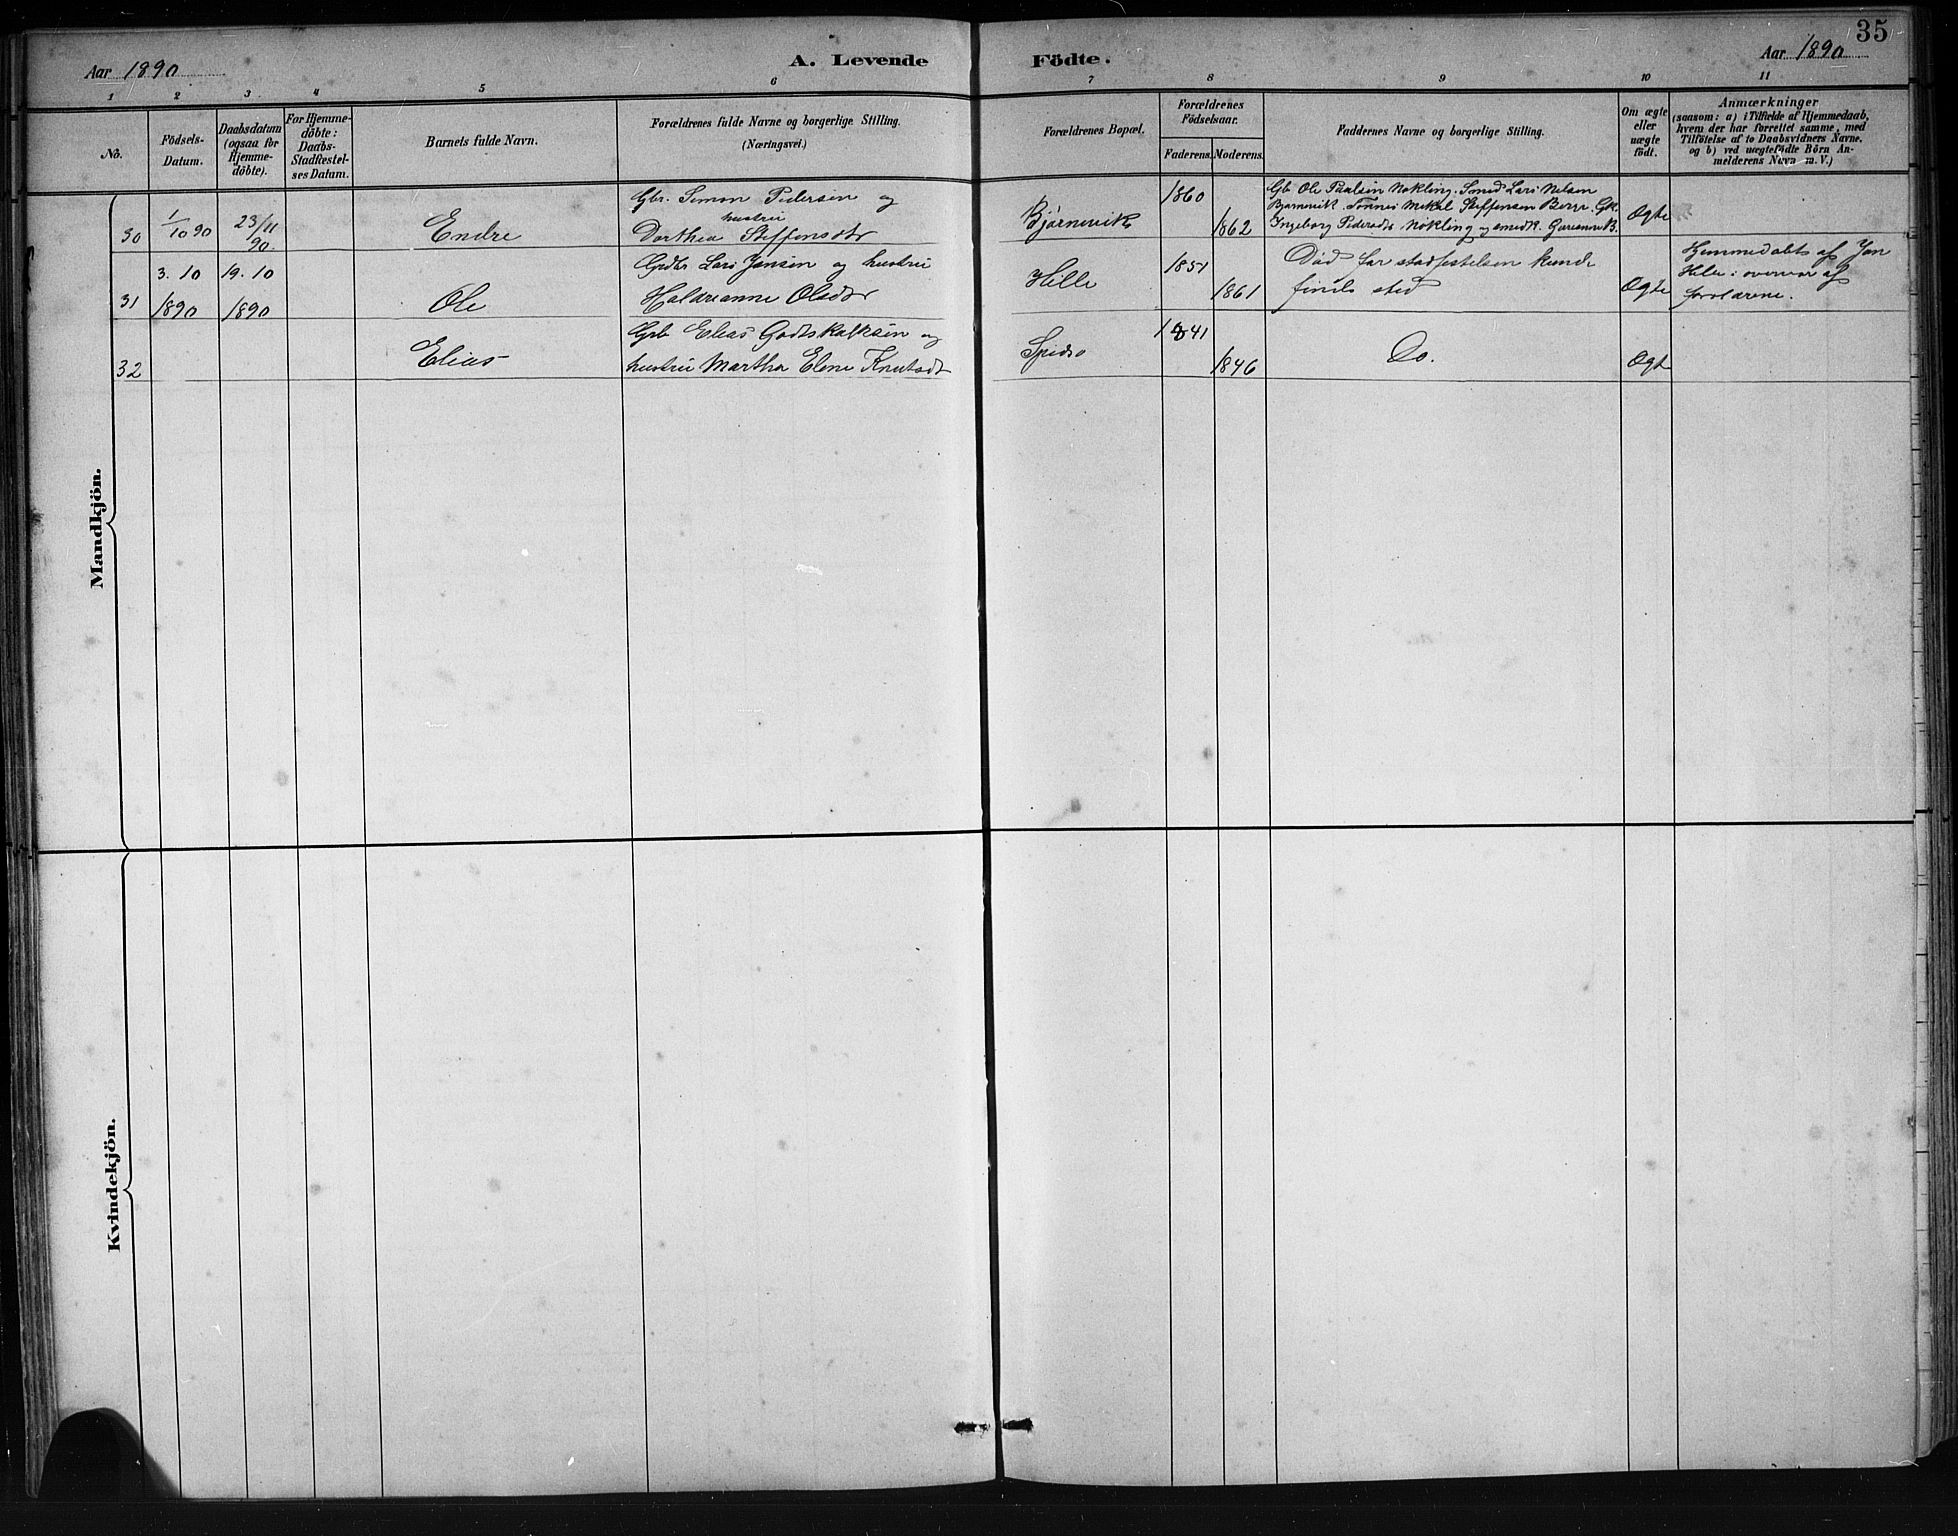 35
Aar 1890
A. Levende Födte.
Aar 1890
1 2 3 4 5 6 7 8 9 10 11
No.
Födsels-
Datum.
Daabsdatum
(ogsaa for
Hjemme-
döbte).
For Hjemme-
döbte:
Daabs-
Stadfæstel-
ses Datum.
Barnets fulde Navn.
Forældrenes fulde Navne og borgerlige Stilling.
(Næringsvei.)
Forældrenes Bopæl.
Forældrenes
Födselsaar.
Faderens. Moderens.
Faddernes Navne og borgerlige Stilling.
Om ægte
eller
uægte
födt.
Anmærkninger
(saasom: a) i Tilfælde af Hjemmedaab,
hvem der har forrettet samme, med
Tilföielse af to Daabsvidners Navne,
og b) ved uægtefödte Börn An-
melderens Navn m. V.)
Mandkjön.
30
1/10 90
23/11
90
Endre
Gbr. Simon Pedersen og
hustru
Dorthea Steffensdtr
Bjørnevik
1860
1862
Gb Ole Paulsen Nøkling. Smed Lars Nelsen
Bjørnevik Tønnes Mikal Steffensen Berge. Gk.
Ingeborg Pedersdtr Nøkling og smedk. B.
Ægte
31
3. 10
1890
19. 10
1890
Ole
Gbr Lars Jansen og hustru
Olsdtr
Hille
1851
1861
Død før stadfestelsen kunde
finde sted
Ægte
Hjemmedøbt af Jan
Hille i overvær af
forældrene.
32
Elias
Gb Elias Godtskalksen og
hustru Martha Elene Knutsdt
Spidsø
1841
1846
Do.
Ægt
Kvindekjön.